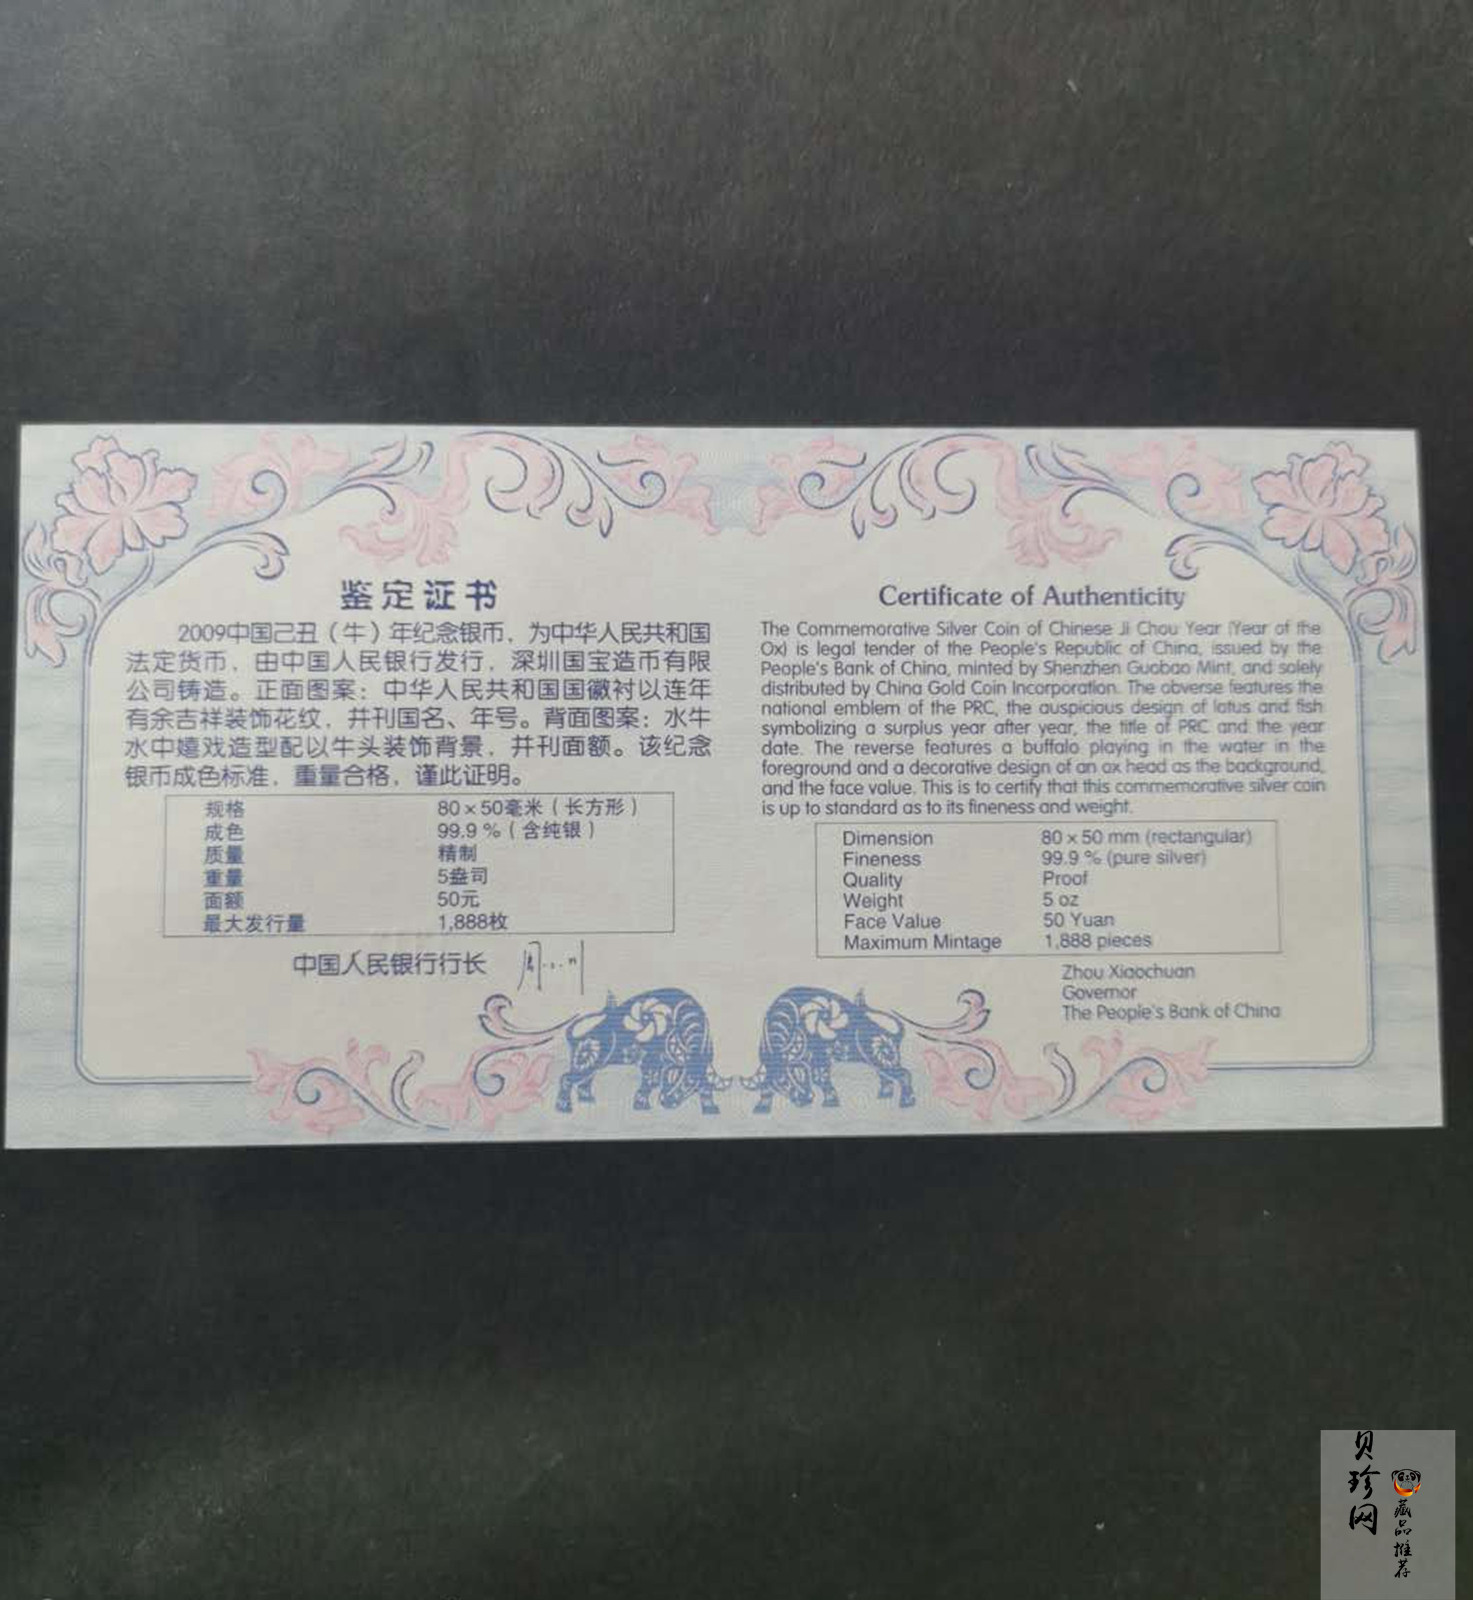 鉴定证书
2009中国己丑（牛）年纪念银币，为中华人民共和国
法定货币，由中国人民银行发行，深圳国宝造币有限
公司铸造。正面图案：中华人民共和国国徽衬以连年
有余吉祥装饰花纹，并刊国名、年号。背面图案：水牛
水中嬉戏造型配以牛头装饰背景，并刊面额。该纪念
银币成色标准，重量合格，谨此证明。
规格 80×50毫米（长方形）
成色 99.9％（含纯银）
质量 精制
重量 5盎司
面额 50元
最大发行量 1,888枚
中国人民银行行长
Certificate of Authenticity
The Commemorative Silver Coin of Chinese Ji Chou Year (Year of the
Ox) is legal tender of the People's Republic of China, issued by the
People's Bank of China, minted by Shenzhen Guobao Mint, and solely
distributed by China Gold Coin Incorporation. The obverse features the
national emblem of the PRC, the auspicious design of lotus and fish
symbolizing a surplus year after year, the title of PRC and the year
date. The reverse features a buffalo playing in the water in the
foreground and a decorative design of an ox head as the background,
and the face value. This is to certify that this commemorative silver coin
is up to standard as to its fineness and weight.
Dimension 80 × 50 mm (rectangular)
Fineness 99.9 % (pure silver)
Quality Proof
Weight 5 oz
Face Value 50 Yuan
Maximum Mintage 1,888 pieces
Zhou Xiaochuan
Governor
The People's Bank of China
贝珍网
藏品推荐